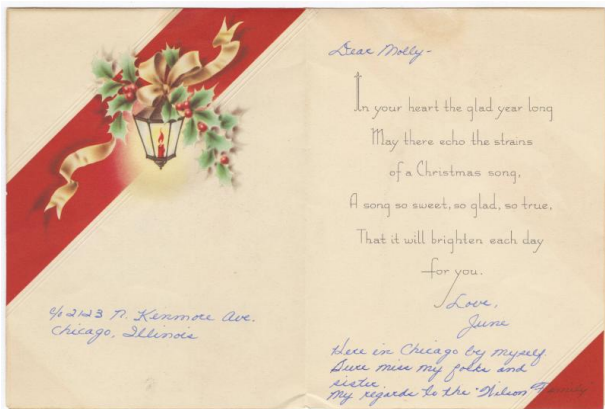 c/o 2123 N. Kenmore Ave.
Chicago, Illinois
Dear Molly-
In your heart the glad year long
May there echo the strains
of a Christmas song,
A song so sweet, so glad, so true,
That it will brighten each day
for you.
Love,
June
Here in Chicago by myself.
Sure miss my folks and
sister.
My regards to the "Wilson" Family